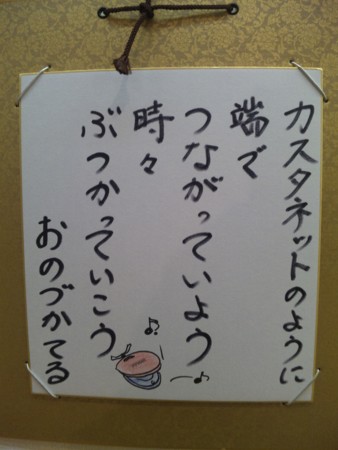 カスタネットのように
端で
つながっていよう
時々
ぶつかっていこう
おのづかてる